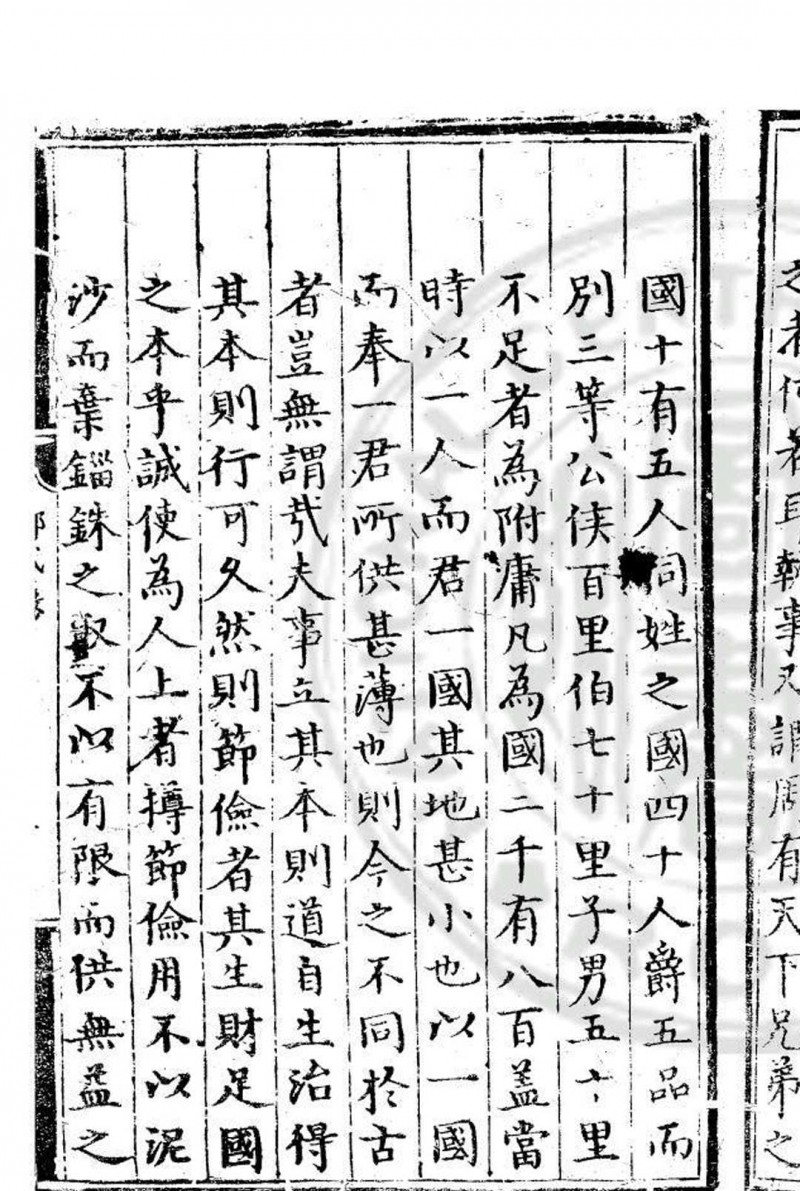 之者何若且執事又謂周有天下兄弟之
國十有五人同姓之國四十人爵五品而
別三等公侯百里伯七十里子男五十里
不足者為附庸凡為國二千有八百盖當
時以一人而君一國其地甚小也以一國
而奉一君所供甚薄也則今之不同於古
者豈無謂哉夫事立其本則道自生治得
其本則行可久然則節儉者其生財足國
之本乎誠使為人上者撙節儉用不以泥
沙而棄錙銖之取不以有限而供無益之